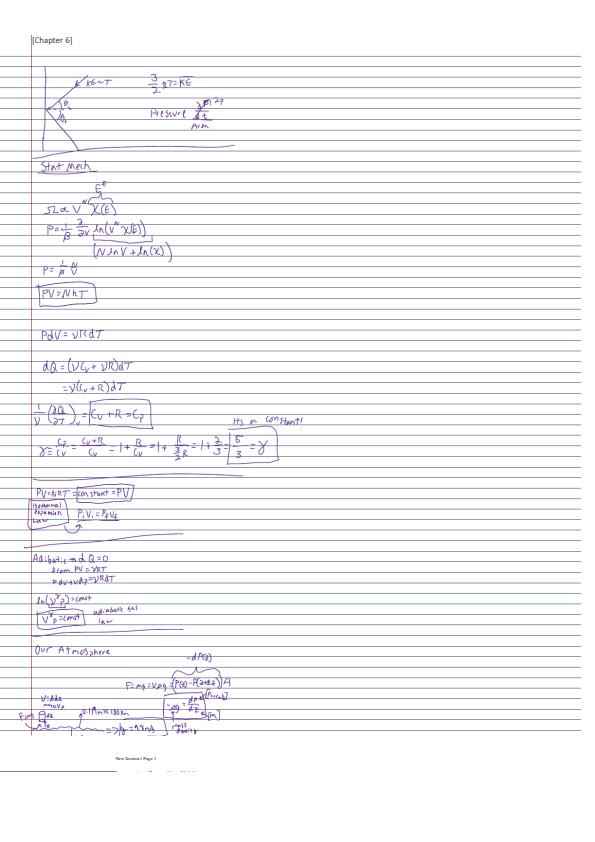 [Chapter 6]
KE~T
3/2 kT = KE
θi
θf
Pressure dp/dt 2p
Area
Stat Mech
E^f
Ω α V^N χ(E)
P = 1/β ∂/∂V ln(V^N χ(E))
(N ln V + ln(χ))
P = 1/β N/V
PV = NkT
PdV = νRdT
dQ = (νCv + νR)dT
= ν(Cv + R)dT
1/ν (∂Q/∂T)ᵥ = Cv + R = Cp
Its a constant!
γ ≡ Cp/Cv = Cv+R/Cv = 1 + R/Cv = 1 + R/(3/2 R) = 1 + 2/3 = 5/3 = γ
PV = NRT = constant = PV
isothermal
expansion
Law
PiVi = PfVf
Adibatic → dQ = 0
from PV = νRT
Pdv + Vdp = νRdT
ln(V^γ p) = const
V^γ p = const
adiabatic gas
law
Our Atmosphere
-dP(z)
F = mg = Vρg = (P(z) - P(z+dz)) A
-ρg = dP/dz
V = Adz
m = Vρ
dz
mass
density